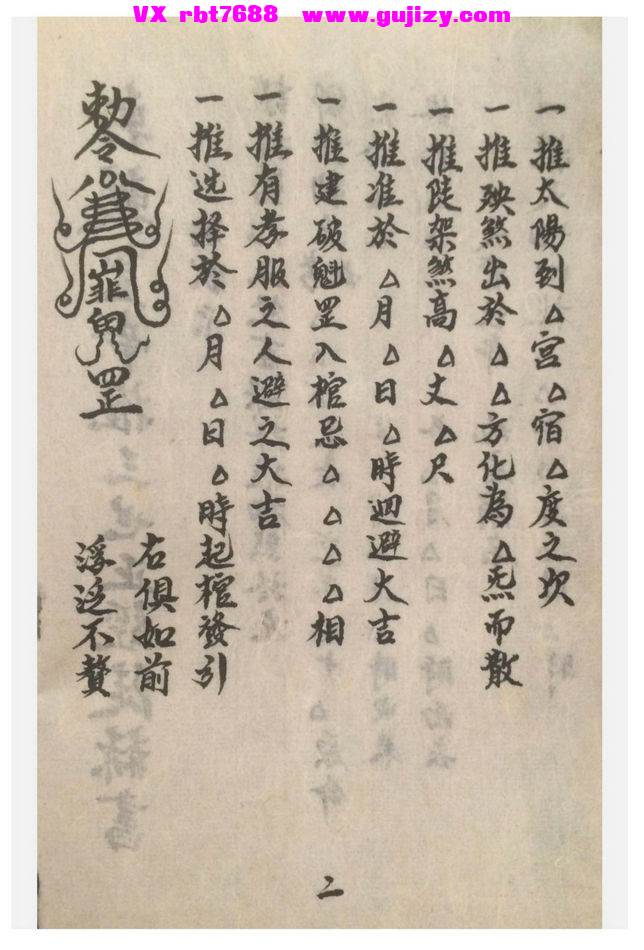 VX rbt7688 www.gujizy.com
一推太陽到△宮△宿△度之次
一推殃煞出於△△方化為△炁而散
一推陡架煞高△丈△尺
一推准於△月△日△時迴避大吉
一推建破魁罡入棺忌△△△△相
一推有孝服之人避之大吉
一推选择於△月△日△時起棺發引
右俱如前
浮泛不贅
勅令
罡
二